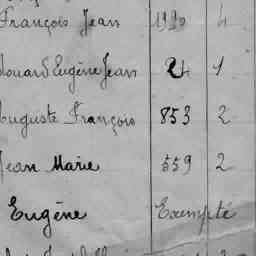 François Jean 1920 4
douard Eugène Jean 24 1
Auguste François 853 2
Jean Marie 559 2
Eugène Exempté